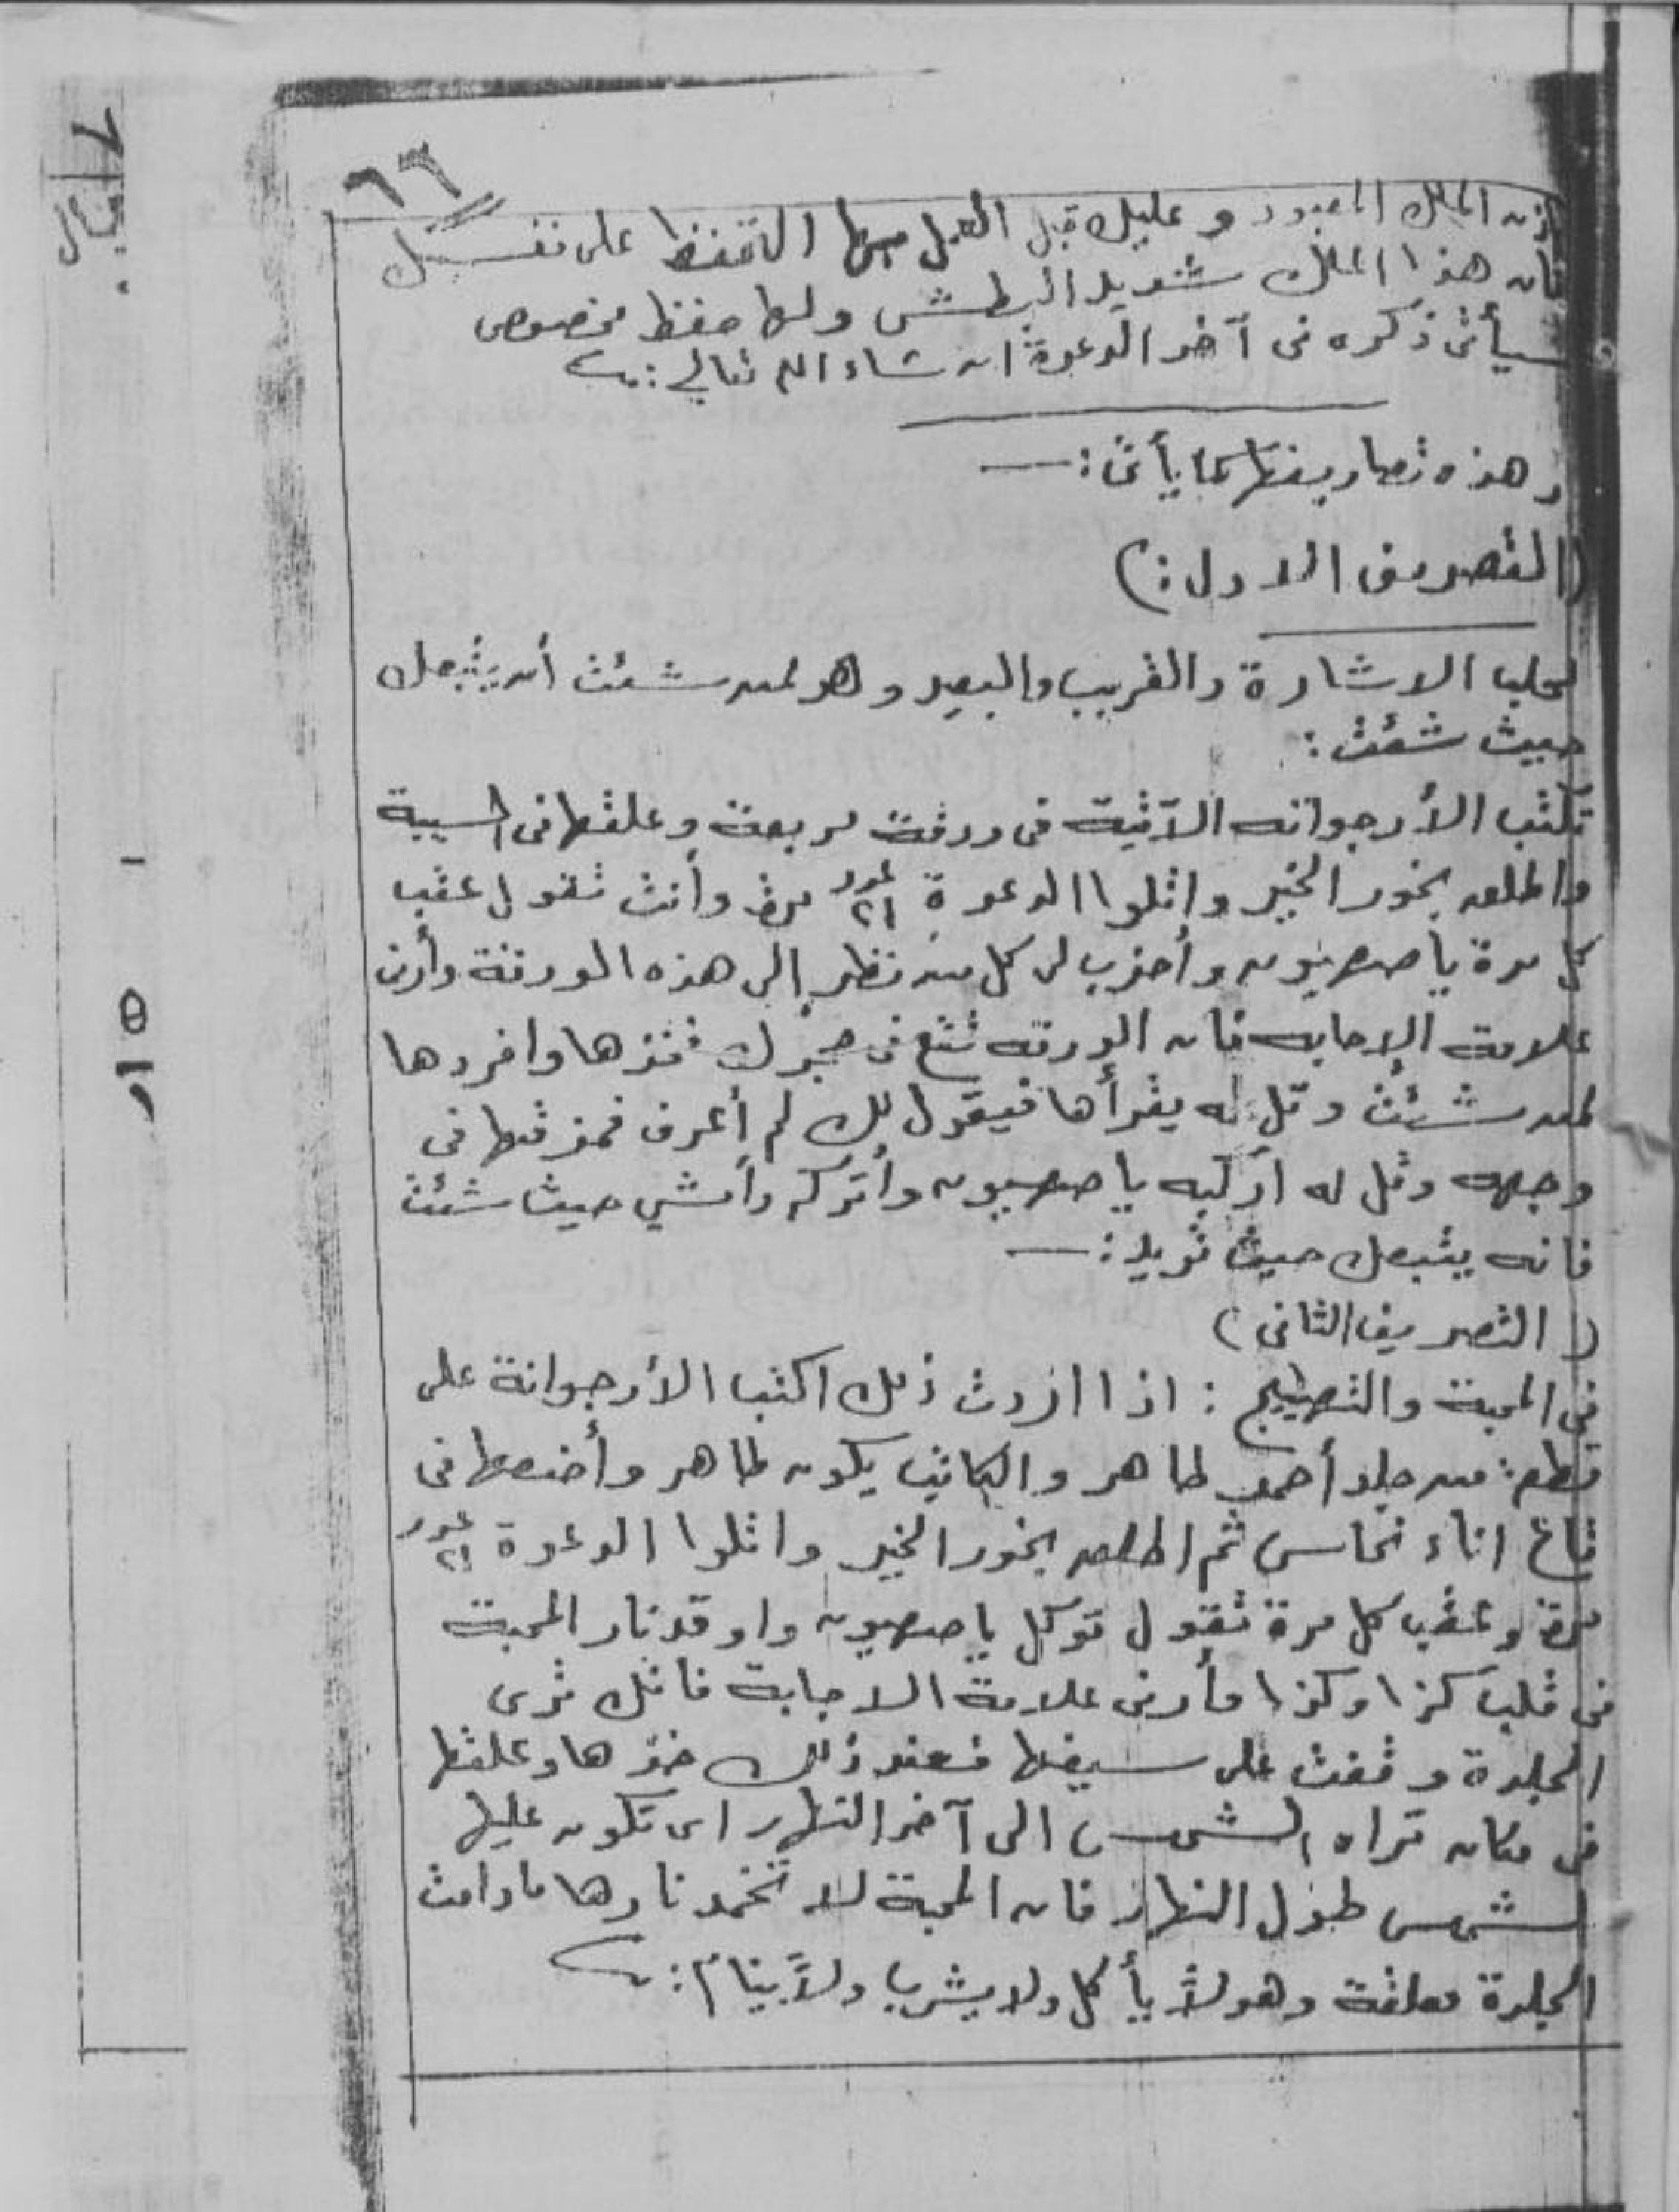 ٦٦
باذن الملك المعبود وعليك قبل العمل بها التحفظ على نفسك
فان هذا الملك شديد البطش ولها حفظ مخصوص
سيأتى ذكره فى آخر الدعوة ان شاء الله تعالى :
وهذه تصاريفها كما يأتى :—
(التصريف الاول :)
لجلب الاشارة والقريب والبعيد وهو لمن شئت أن يتبعك
حيث شئت :
تكتب الأرجوانه الآتية فى ورقة مربعة وعلقها فى السيبة
واطلق بخور الخير واتلوا الدعوة عدد ٢١ مرة وأنت تقول عقب
كل مرة يا صهيون وأضرب لى كل من نظر إلى هذه الورقة وأرنى
علامة الإجابه فان الورقه تقع فى حجرك فخذها وافردها
لمن شئت وقل له يقرأها فيقول لك لم أعرف فمزقها فى
وجهه وقل له اركبه يا صهيون وأتركه وأمشي حيث شئت
فانه يتبعك حيث تريد :—
( التصريف الثانى )
فى المحبة والتهييج : اذا اردت ذلك اكتب الأرجوانة على
قطعة من جلد أحمر طاهر والكاتب يكون طاهر وأضعها فى
قاع اناء نحاس ثم اطلق بخور الخير واتلوا الدعوة عدد ٢١
مرة وعقب كل مرة تقول توكل يا صهيون واوقد نار المحبة
فى قلب كذا وكذا وأرنى علامة الاجابة فانك ترى
الجلدة وقفت على سيفها فعند ذلك خذها وعلقها
فى مكان تراه الشمس الى آخر النهار اى تكون عليها
الشمس طول النهار فان المحبة لا تخمد نارها مادامت
الجلدة معلقة وهو لا يأكل ولا يشرب ولا ينام :
١٥